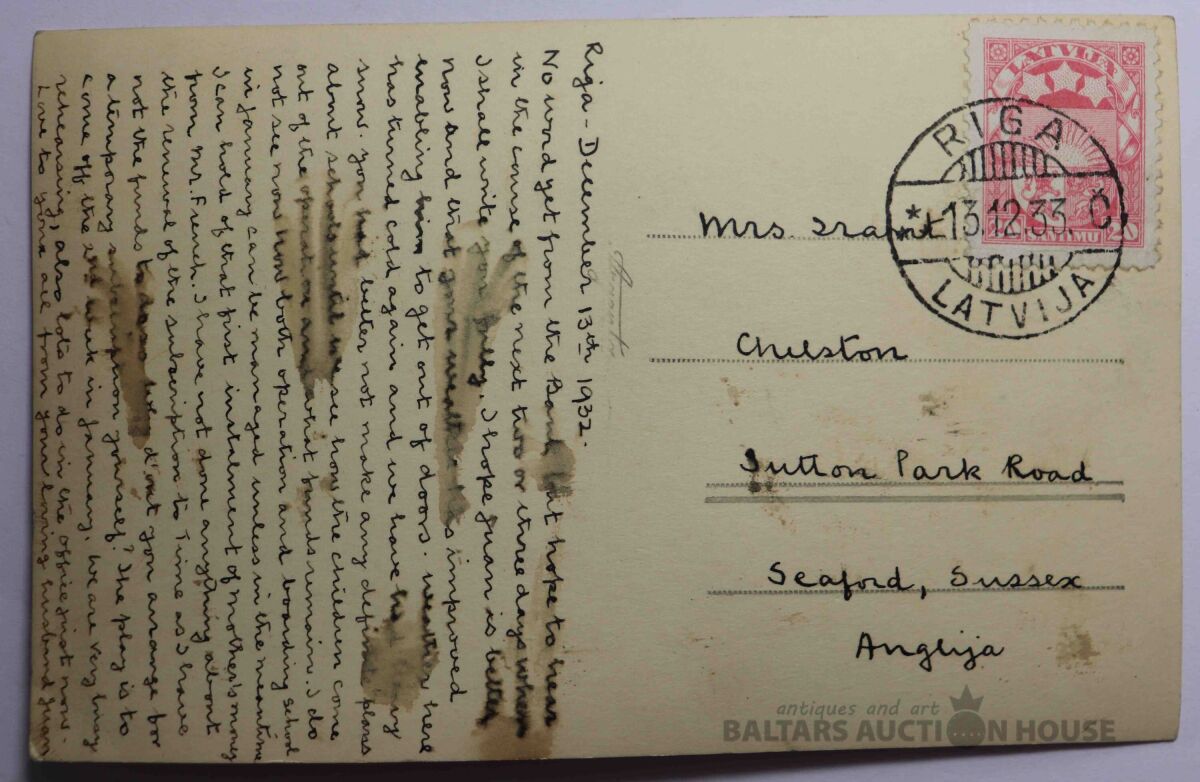 Riga - December 13th 1932.
No word yet from the Bank, but hope to hear
in the course of the next two or three days when
I shall write you fully. I hope Juan is better
now and that your weather has improved
enabling him to get out of doors. Weather here
has turned cold again and we have had
snow. You had better not make any definite plans
about schools until we see how the children come
out of the operation and what funds remain. I do
not see now how both operation and boarding school
in January can be managed unless in the meantime
I can hold of that first instalment of mother's money
from Mr. French. I have not done anything about
the renewal of the subscription to Time as I have
not the funds to d'out you arrange for
a temporary subscription yourself? The play is to
come off the week in January. We are very busy
rehearsing, also lots to do in the office just now.
Love to you all from your loving husband
Mrs.
Chelston
Sutton Park Road
Seaford, Sussex
Anglija
LATVIJA
SANTIMU 20
RIGA
13.12.33. Č
LATVIJA
antiques and art
BALTARS AUCTION HOUSE